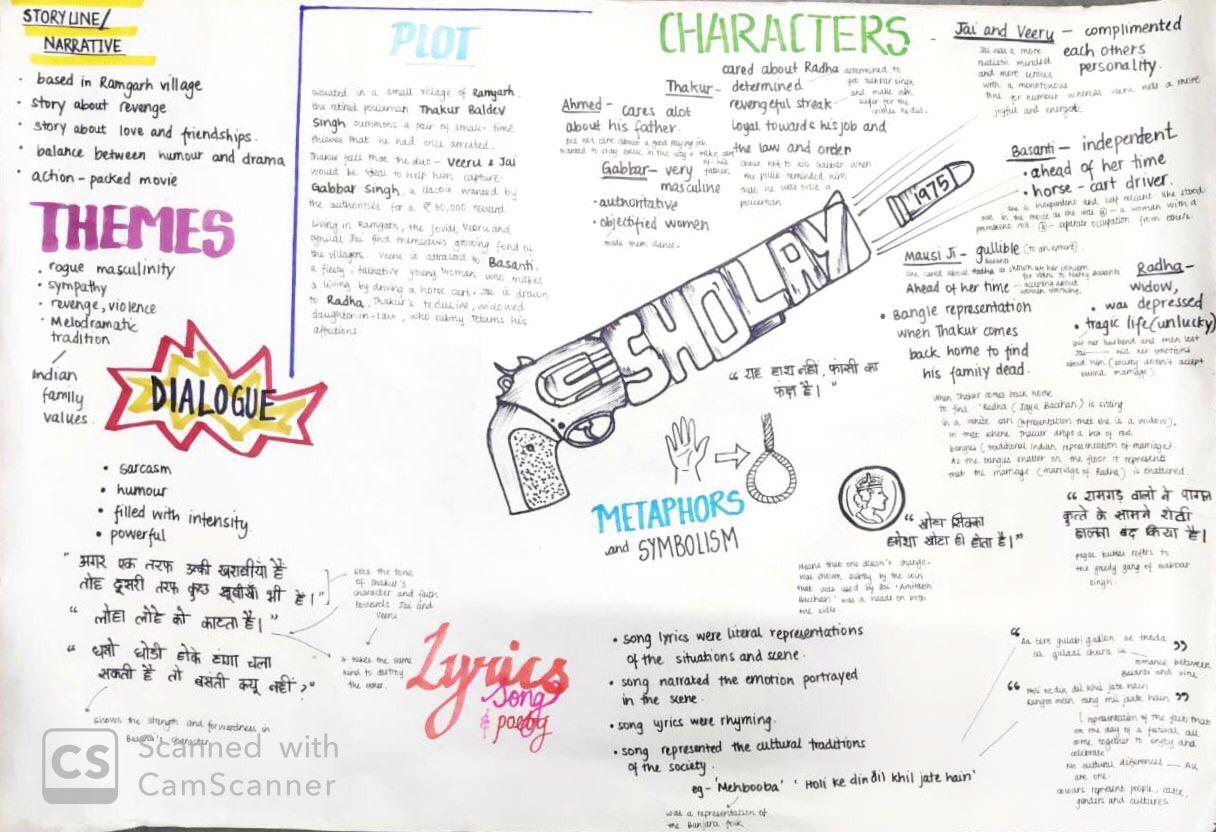 STORYLINE/
NARRATIVE
• based in Ramgarh village
• story about revenge
• story about love and friendships.
• balance between humour and drama
• action-packed movie
THEMES
• rogue masculinity
• sympathy
• revenge, violence
• Melodramatic
tradition
Indian
family
values.
DIALOGUE
• sarcasm
• humour
• filled with intensity.
• powerful
" अगर एक तरफ उनकी खराबीयां है
तोह दूसरी तरफ कुछ खूबीयाँ भी है। "
sets the tone
of thakur's
character and faith
towards Jai and
veeru
" लोहा लोहे को काटता है। "
it takes the same
kind to destroy
the other.
" धन्नो घोडी होके टांगा चला
सकती है तो बसंती क्यू नहीं ? "
shows the strength and forwardness in
Basanti's character
PLOT
situated in a small village of Ramgarh.
the retired policeman Thakur Baldev
Singh summons a pair of small-time
thieves that he had once arrested.
Thakur feels that the duo - Veeru & Jai
would be ideal to help him capture
Gabbar Singh, a dacoit wanted by
the authorities for a ₹50,000 reward
Living in Ramgarh, the jovial Veeru and
cynical Jai find themselves growing fond of
the villagers. Veeru is attracted to Basanti,
a feisty, talkative young woman who makes
a living by driving a horse cart. Jai is drawn
to Radha, Thakur's reclusive, widowed
daughter-in-law, who subtly returns his
affections.
CHARACTERS
Ahmed - cares alot
about his father.
Gabbar - very
masculine
• authoritative
• objectified women
made them dance.
Thakur -
cared about Radha
determined
revengeful streak
loyal towards his job and
the law and order
determined to
get Gabbar singh
and make him
suffer for the
crimes he did.
chose not to kill Gabbar when
the police reminded him
that he was once a
policeman
Jai and Veeru - complimented
each others
personality.
Jai was a more
realistic mindset
and more serious
with a monotonous
tone for humour whereas veeru was a more
joyful and energetic
Basanti - independent
• ahead of her time
• horse-cart driver.
she is independent and self reliant. She stood
out in the movie as she was a woman with a
separate occupation from cows.
Mausi Ji - gullible (to an extent).
Ahead of her time - accepting about
women working.
Radha -
widow,
• was depressed
• tragic life (unlucky)
1975
SHOLAY
• Bangle representation
when Thakur comes
back home to find
his family dead.
when Thakur comes back home
to find 'Radha (Jaya Bacchan) is sitting
in a white sari (representation that she is a widow).
is that where Thakur drops a box of red
bangles (traditional Indian representation of marriage).
As the bangles shatter on the floor it represents
that the marriage (marriage of Radha) is shattered.
" यह हाथ नहीं, फांसी का
फंदा है। "
METAPHORS
and SYMBOLISM
" खोटा सिक्का
हमेशा खोटा ही होता है। "
Means that one doesn't change.
was shown subtly by the coin
that was used by Jai 'Amitabh
Bacchan' was a heads on both
the sides.
" रामगड़ वालो ने पागल
कुत्ते के सामने रोटी
डालना बंद किया है।
pagal kuttas refers to
the greedy gang of Gabbar
singh.
Lyrics
Song
& poetry
• song lyrics were literal representations
of the situations and scene.
• song narrated the emotion portrayed
in the scene.
• song lyrics were rhyming.
• song represented the cultural traditions
of the society.
eg - 'Mehbooba' 'Holi ke din dil khil jate hain'
was a representation of
the Banjara folk
" Aa tere gulabi gaalon se thoda
sa gulaal chura lu "
romance between
Basanti and
" Holi ke din dil khil jate hain
Rangon mein rang mil jate hain "
( representation of the fact that
on the day of a festival, all
come together to enjoy and
celebrate )
No cultural differences - All
are one.
colours represent people, caste,
genders and cultures.
CS Scanned with
CamScanner